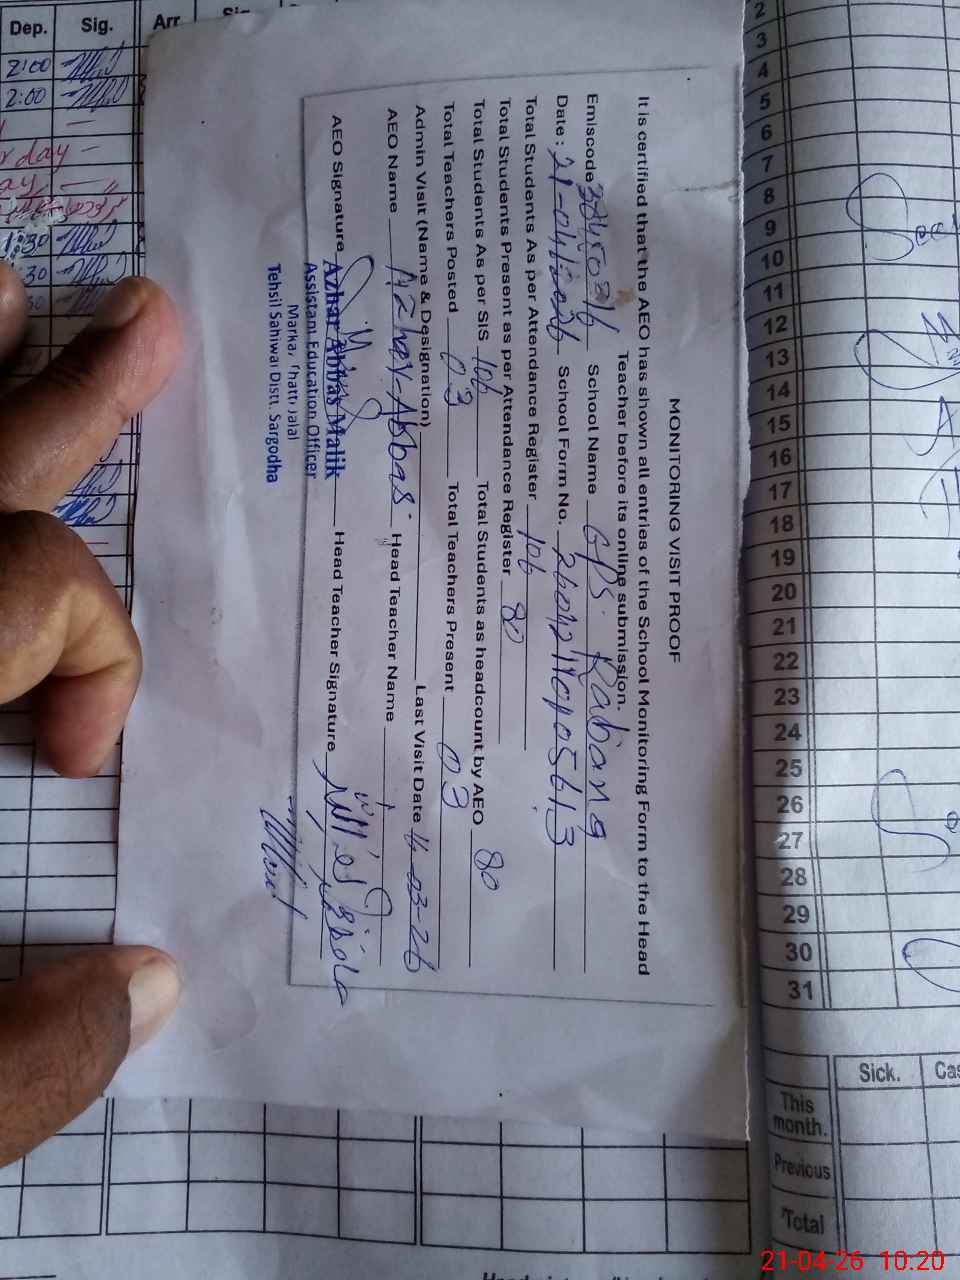 MONITORING VISIT PROOF
It is certified that the AEO has shown all entries of the School Monitoring Form to the Head
Teacher before its online submission.
Emiscode School Name GPS Rabana
Date : 21-04-2026 School Form No.
Total Students As per Attendance Register 106
Total Students Present as per Attendance Register 80
Total Students As per SIS 106 Total Students as headcount by AEO 80
Total Teachers Posted 03 Total Teachers Present 03
Admin Visit (Name & Designation) Last Visit Date 16-03-26
AEO Name Azhar Abbas Head Teacher Name
AEO Signature Head Teacher Signature
Azhar Abbas Malik
Assistant Education Officer
Markaz Chatti Jalal
Tehsil Sahiwal Distt. Sargodha
Dep. Sig. Arr
2:00
2:00
2
3
4
5
6
7
8
9
10
11
12
13
14
15
16
17
18
19
20
21
22
23
24
25
26
27
28
29
30
31
Sick.
This month.
Previous
Total
21-04-26 10:20